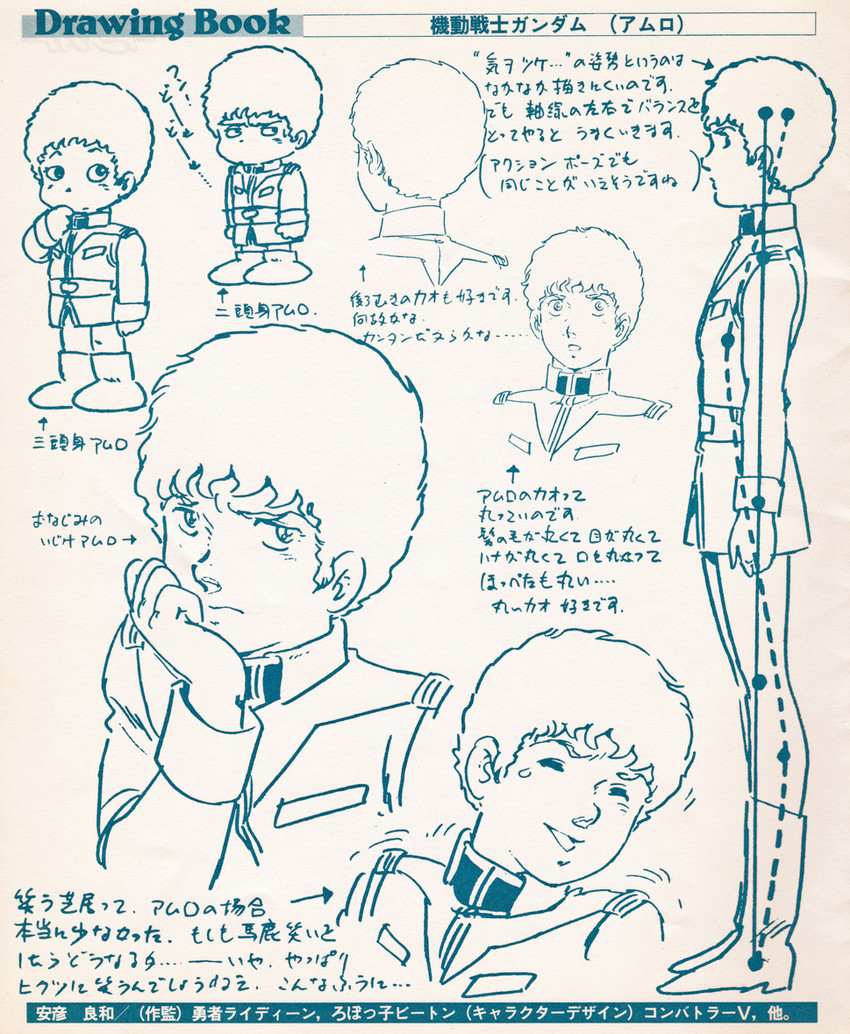 Drawing Book
機動戦士ガンダム （アムロ）
"気ヲツケ…"の姿勢というのは
なかなか描きにくいのです.
でも 軸線の左右でバランスを
とってやると うまくいきます.
(アクション ポーズでも
同じことが いえそうですね)
フン!
ど ど ど
↑
二頭身アムロ.
↑
後ろむきのカオも好きです.
何故かな.
カンタンだからかな……
↑
三頭身アムロ
おなじみの
いじけアムロ→
↑
アムロのカオって
丸っこいのです.
髪の毛が丸くて 目が丸くて
ハナが丸くて 口も丸くって
ほっぺたも丸い….
丸いカオ 好きです.
笑う芝居って, アムロの場合
本当に少なかった. もしも馬鹿笑いど
したらどうなるか…. ――いや, やっぱり
ヒクツに笑うんでしょうねェ. こんなふうに…
安彦 良和／（作監）勇者ライディーン，ろぼっ子ビートン（キャラクターデザイン）コンバトラーＶ，他。